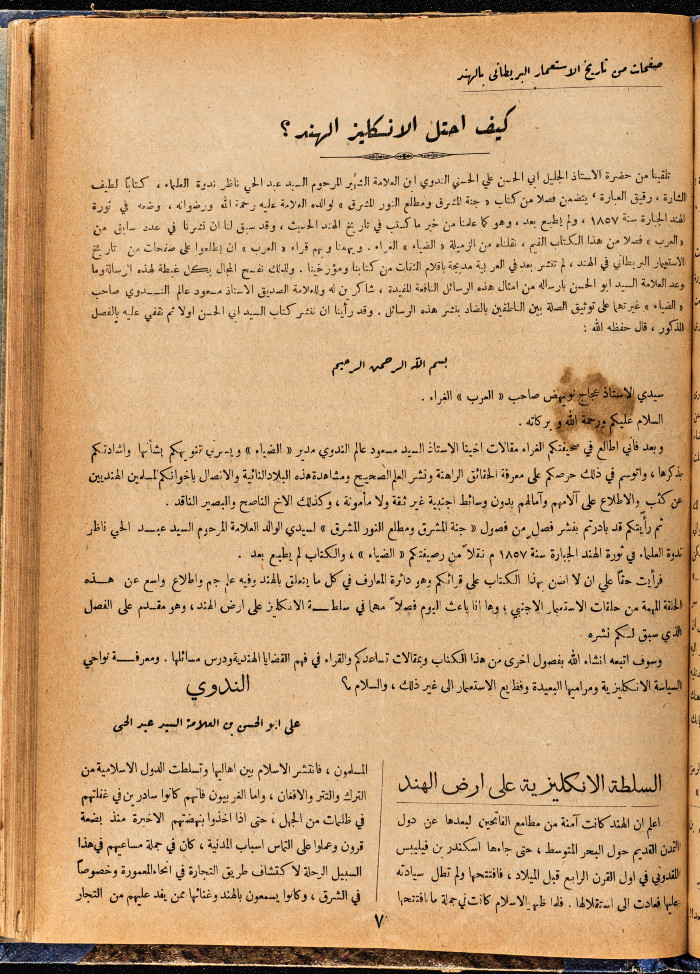 صفحات من تاريخ الاستعمار البريطاني بالهند
كيف احتل الانكليز الهند ؟
تلقينا من حضرة الاستاذ الجليل ابي الحسن علي الحسني الندوي ابن العلامة الشهير المرحوم السيد عبد الحي ناظر ندوة العلماء ، كتابا لطيف
الشارة ، رقيق العبارة ، يتضمن فصلا من كتاب « جنة المشرق ومطلع النور المشرق » لوالده العلامة عليه رحمة الله ورضوانه ، وضعه في ثورة
الهند الجبارة سنة ١٨٥٧ ، ولم يطبع بعد ، وهو كما علمنا من خير ما كتب في تاريخ الهند الحديث ، وقد سبق لنا ان نشرنا في عدد سابق من
« العرب » فصلا من هذا الكتاب القيم ، نقلناه من الزميلة « الضياء » الغراء . ويهمنا ويهم قراء « العرب » ان يطلعوا على صفحات من تاريخ
الاستعمار البريطاني في الهند ، لم تنشر بعد في العربية مدبجة باقلام الثقات من كتابنا ومؤرخينا . ولذلك نفسح المجال بكل غبطة لهذه الرسالة وما
وعد العلامة السيد ابو الحسن بارساله من امثال هذه الرسائل النافعة المفيدة ، شاكرين له وللعلامة الصديق الاستاذ مسعود عالم الندوي صاحب
« الضياء » غيرتهما على توثيق الصلة بين الناطقين بالضاد بنشر هذه الرسائل . وقد رأينا ان ننشر كتاب السيد ابي الحسن اولا ثم نقفي عليه بالفصل
المذكور ، قال حفظه الله :
بسم الله الرحمن الرحيم
سيدي الاستاذ عجاج نويهض صاحب « العرب » الغراء .
السلام عليكم ورحمة الله وبركاته .
وبعد فاني اطالع في صحيفتكم الغراء مقالات اخينا الاستاذ السيد مسعود عالم الندوي مدير « الضياء » ويسرني تنويهكم بشأنها واشادتكم
بذكرها ، واتوسم في ذلك حرصكم على معرفة الحقائق الراهنة ونشر العلم الصحيح ومشاهدة هذه البلاد النائية والاتصال باخوانكم المسلمين الهنديين
عن كثب والاطلاع على آلامهم وآمالهم بدون وسائط اجنبية غير ثقة ولا مأمونة ، وكذلك الاخ الناصح والبصير الناقد .
ثم رأيتكم قد بادرتم بنشر فصل من فصول « جنة المشرق ومطلع النور المشرق » لسيدي الوالد العلامة المرحوم السيد عبد الحي ناظر
ندوة العلماء في ثورة الهند الجبارة سنة ١٨٥٧ م نقلاً من رصيفتكم « الضياء » ، والكتاب لم يطبع بعد .
فرأيت حقاً علي ان لا اضن بهذا الكتاب على قرائكم وهو دائرة المعارف في كل ما يتعلق بالهند وفيه علم جم واطلاع واسع عن هذه
الحلقة المهمة من حلقات الاستعمار الاجنبي ؛ وها انا باعث اليوم فصلاً مهما في سلطة الانكليز على ارض الهند ، وهو مقدم على الفصل
الذي سبق لكم نشره
وسوف اتبعه انشاء الله بفصول اخرى من هذا الكتاب وبمقالات تساعدكم والقراء في فهم القضايا الهندية ودرس مسائلها . ومعرفة نواحي
السياسة الانكليزية ومراميها البعيدة وفظايع الاستعمار الى غير ذلك ، والسلام ؟
الندوي
على ابو الحسن بن العلامة السيد عبد الحى
السلطة الانكليزية على ارض الهند
اعلم ان الهند كانت آمنة من مطامع الفاتحين لبعدها عن دول
التمدن القديم حول البحر المتوسط ، حتى جاءها اسكندر بن فيليبس
المقدوني في اول القرن الرابع قبل الميلاد ، فافتتحها ولم تطل سيادته
عليها فعادت الى استقلالها . فلما ظهر الاسلام كانت في جملة ما افتتحها
المسلمون ، فانتشر الاسلام بين اهاليها وتسلطت الدول الاسلامية من
الترك والتتر والافغان ، واما الغربيون فانهم كانوا سادرين في غفلتهم
في ظلمات من الجهل ، حتى اذا اخذوا بنهضتهم الاخيرة منذ بضعة
قرون وعملوا على التماس اسباب المدنية ، كان في جملة مساعيهم في هذا
السبيل الرحلة لاكتشاف طريق التجارة في انحاء المعمورة وخصوصاً
في الشرق ، وكانوا يسمعون بالهند وغنائها ممن يفد عليهم من التجار
٧